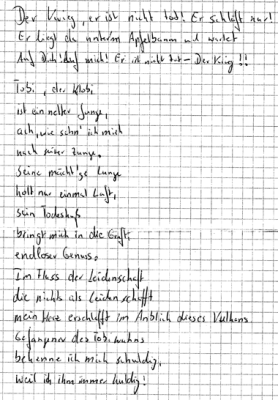 Der König, er ist nicht tot! Er schläft nur!
Er liegt da unterm Apfelbaum und wartet
Auf Dich! Auf mich! Er ist nicht tot – Der König!!
Tobi, der Klobi
ist ein netter Junge,
ach, wie sehn' ich mich
nach seiner Zunge.
Seine mächt'ge Lunge
holt nur einmal Luft,
sein Todeskuß
bringt mich in die Gruft,
endloser Genuss.
Im Fluss der Leidenschaft
die nichts als Leiden schafft
mein Herz erschlafft im Anblick dieses Vulkans
Gefangener des Tobiwahns
bekenne ich mich schuldig,
weil ich ihm immer huldig!